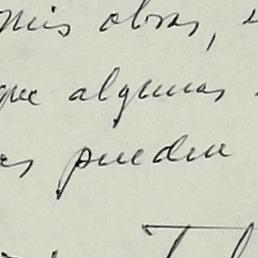 mis obras,
que algunas
pueden